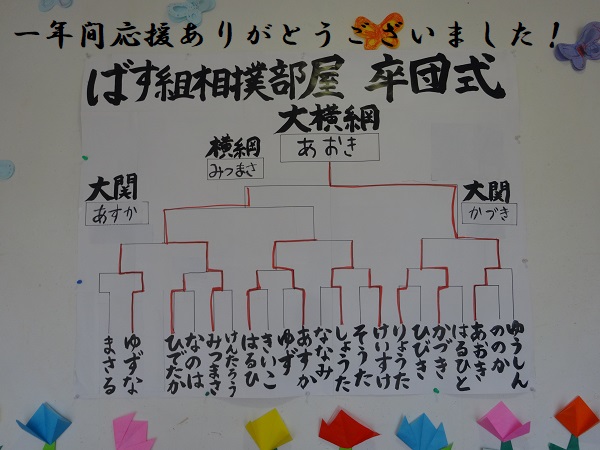 一年間応援ありがとうございました！
ばす組相撲部屋 卒団式
大横綱
あおき
横綱
みつまさ
大関
あすか
大関
かづき
まさる
ゆずな
ひでたか
なのは
みつまさ
けんたろう
はるひ
きいこ
ゆず
あすか
ななみ
しょうた
そうた
けいすけ
りょうた
ひびき
かづき
はるひと
あおき
ののか
ゆうしん